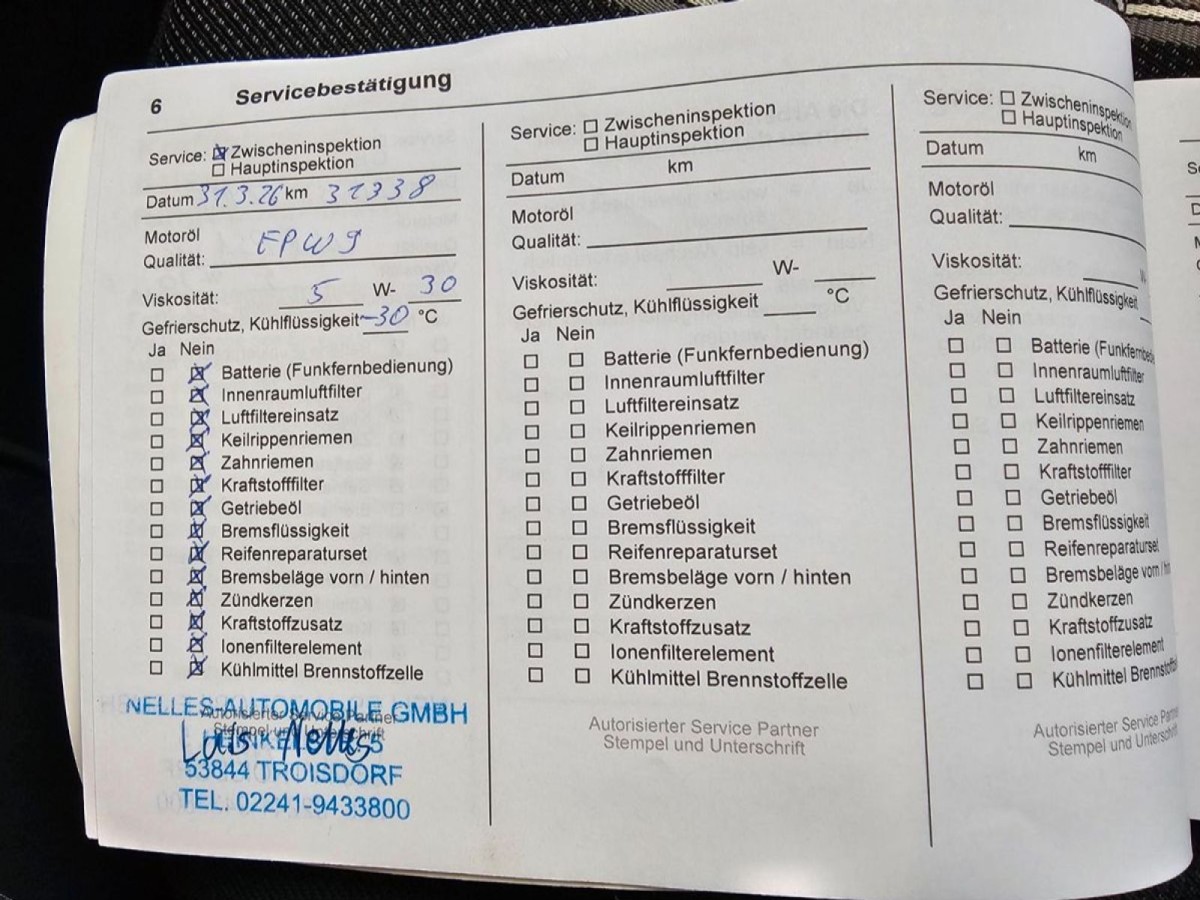 6 Servicebestätigung
Service: Zwischeninspektion
Hauptinspektion
Datum 31.3.26 km 31338
Motoröl
Qualität: FPW9
Viskosität: 5 W- 30
Gefrierschutz, Kühlflüssigkeit -30 °C
Ja Nein
Batterie (Funkfernbedienung)
Innenraumluftfilter
Luftfiltereinsatz
Keilrippenriemen
Zahnriemen
Kraftstofffilter
Getriebeöl
Bremsflüssigkeit
Reifenreparaturset
Bremsbeläge vorn / hinten
Zündkerzen
Kraftstoffzusatz
Ionenfilterelement
Kühlmittel Brennstoffzelle
NELLES-AUTOMOBILE GMBH
Autorisierter Service Partner
Stempel und Unterschrift
53844 TROISDORF
TEL. 02241-9433800
Service: Zwischeninspektion
Hauptinspektion
Datum km
Motoröl
Qualität:
Viskosität: W-
Gefrierschutz, Kühlflüssigkeit °C
Ja Nein
Batterie (Funkfernbedienung)
Innenraumluftfilter
Luftfiltereinsatz
Keilrippenriemen
Zahnriemen
Kraftstofffilter
Getriebeöl
Bremsflüssigkeit
Reifenreparaturset
Bremsbeläge vorn / hinten
Zündkerzen
Kraftstoffzusatz
Ionenfilterelement
Kühlmittel Brennstoffzelle
Autorisierter Service Partner
Stempel und Unterschrift
Service: Zwischeninspektion
Hauptinspektion
Datum km
Motoröl
Qualität:
Viskosität: W-
Gefrierschutz, Kühlflüssigkeit
Ja Nein
Batterie (Funkfernbedie
Innenraumluftfilter
Luftfiltereinsatz
Keilrippenriemen
Zahnriemen
Kraftstofffilter
Getriebeöl
Bremsflüssigkeit
Reifenreparaturset
Bremsbeläge vorn / hin
Zündkerzen
Kraftstoffzusatz
Ionenfilterelement
Kühlmittel Brennstoff
Autorisierter Service Part
Stempel und Unterschrift